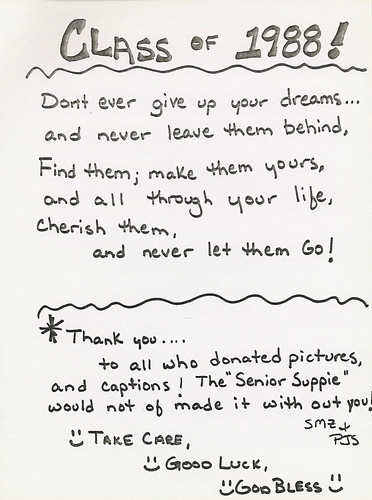 CLASS OF 1988!
Don't ever give up your dreams...
and never leave them behind,
Find them; make them yours,
and all through your life,
Cherish them,
and never let them Go!
* Thank you....
to all who donated pictures,
and captions! The "Senior Suppie"
would not of made it with out you!
SMZ +
PJS
TAKE CARE,
GOOD LUCK,
GOD BLESS